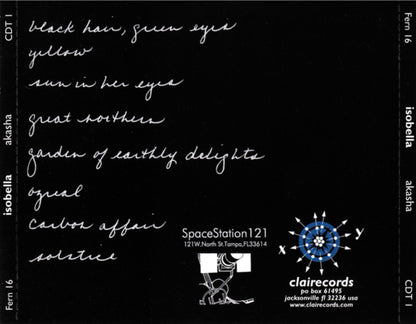 CDT 1
akasha
isobella
Fern 16
black hair, green eyes
yellow
sun in her eyes
great northern
garden of earthly delights
ogreal
carbon affair
solstice
SpaceStation121
121W.North St.Tampa,FL33614
x
y
clairecords
po box 61495
jacksonville fl 32236 usa
www.clairecords.com
Fern 16
isobella
akasha
CDT 1